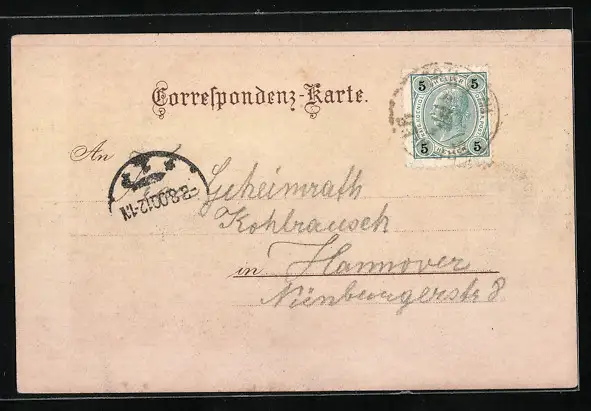 Correspondenz-Karte.
5 5
5 5
An
Geheimrath
-2.8.00.12-1.N
Kohlrausch
in Hannover
Nienburgerstr 8